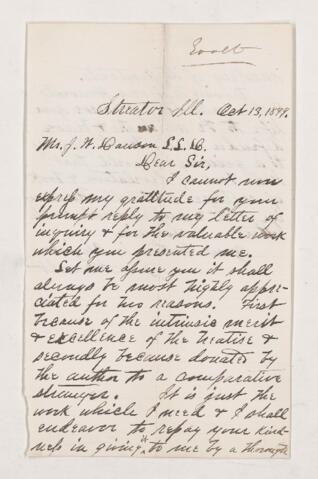 Streator Ill. Oct 13, 1879.
Mr. J. W. Dawson L.L.D.
Dear Sir,
I cannot now
express my gratitude for your
prompt reply to my letter of
inquiry & for the valuable work
which you presented me.
Let me assure you it shall
always be most highly appre-
ciated for two reasons. First
because of the intrinsic merit
& excellence of the treatise &
secondly because donated by
the author to a comparative
stranger. It is just the
work which I need & I shall
endeavor to repay your kind-
ness in giving it to me by a thorough